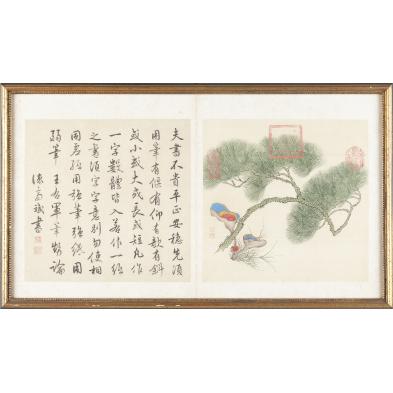 夫書不貴平正安穩先須
用筆有偃有仰有欹有斜
或小或大或長或短凡作
一字數體皆入若作一紙
之書須字字意別勿使相
同虛紙用強筆強紙用
弱筆 王右軍筆勢論
書